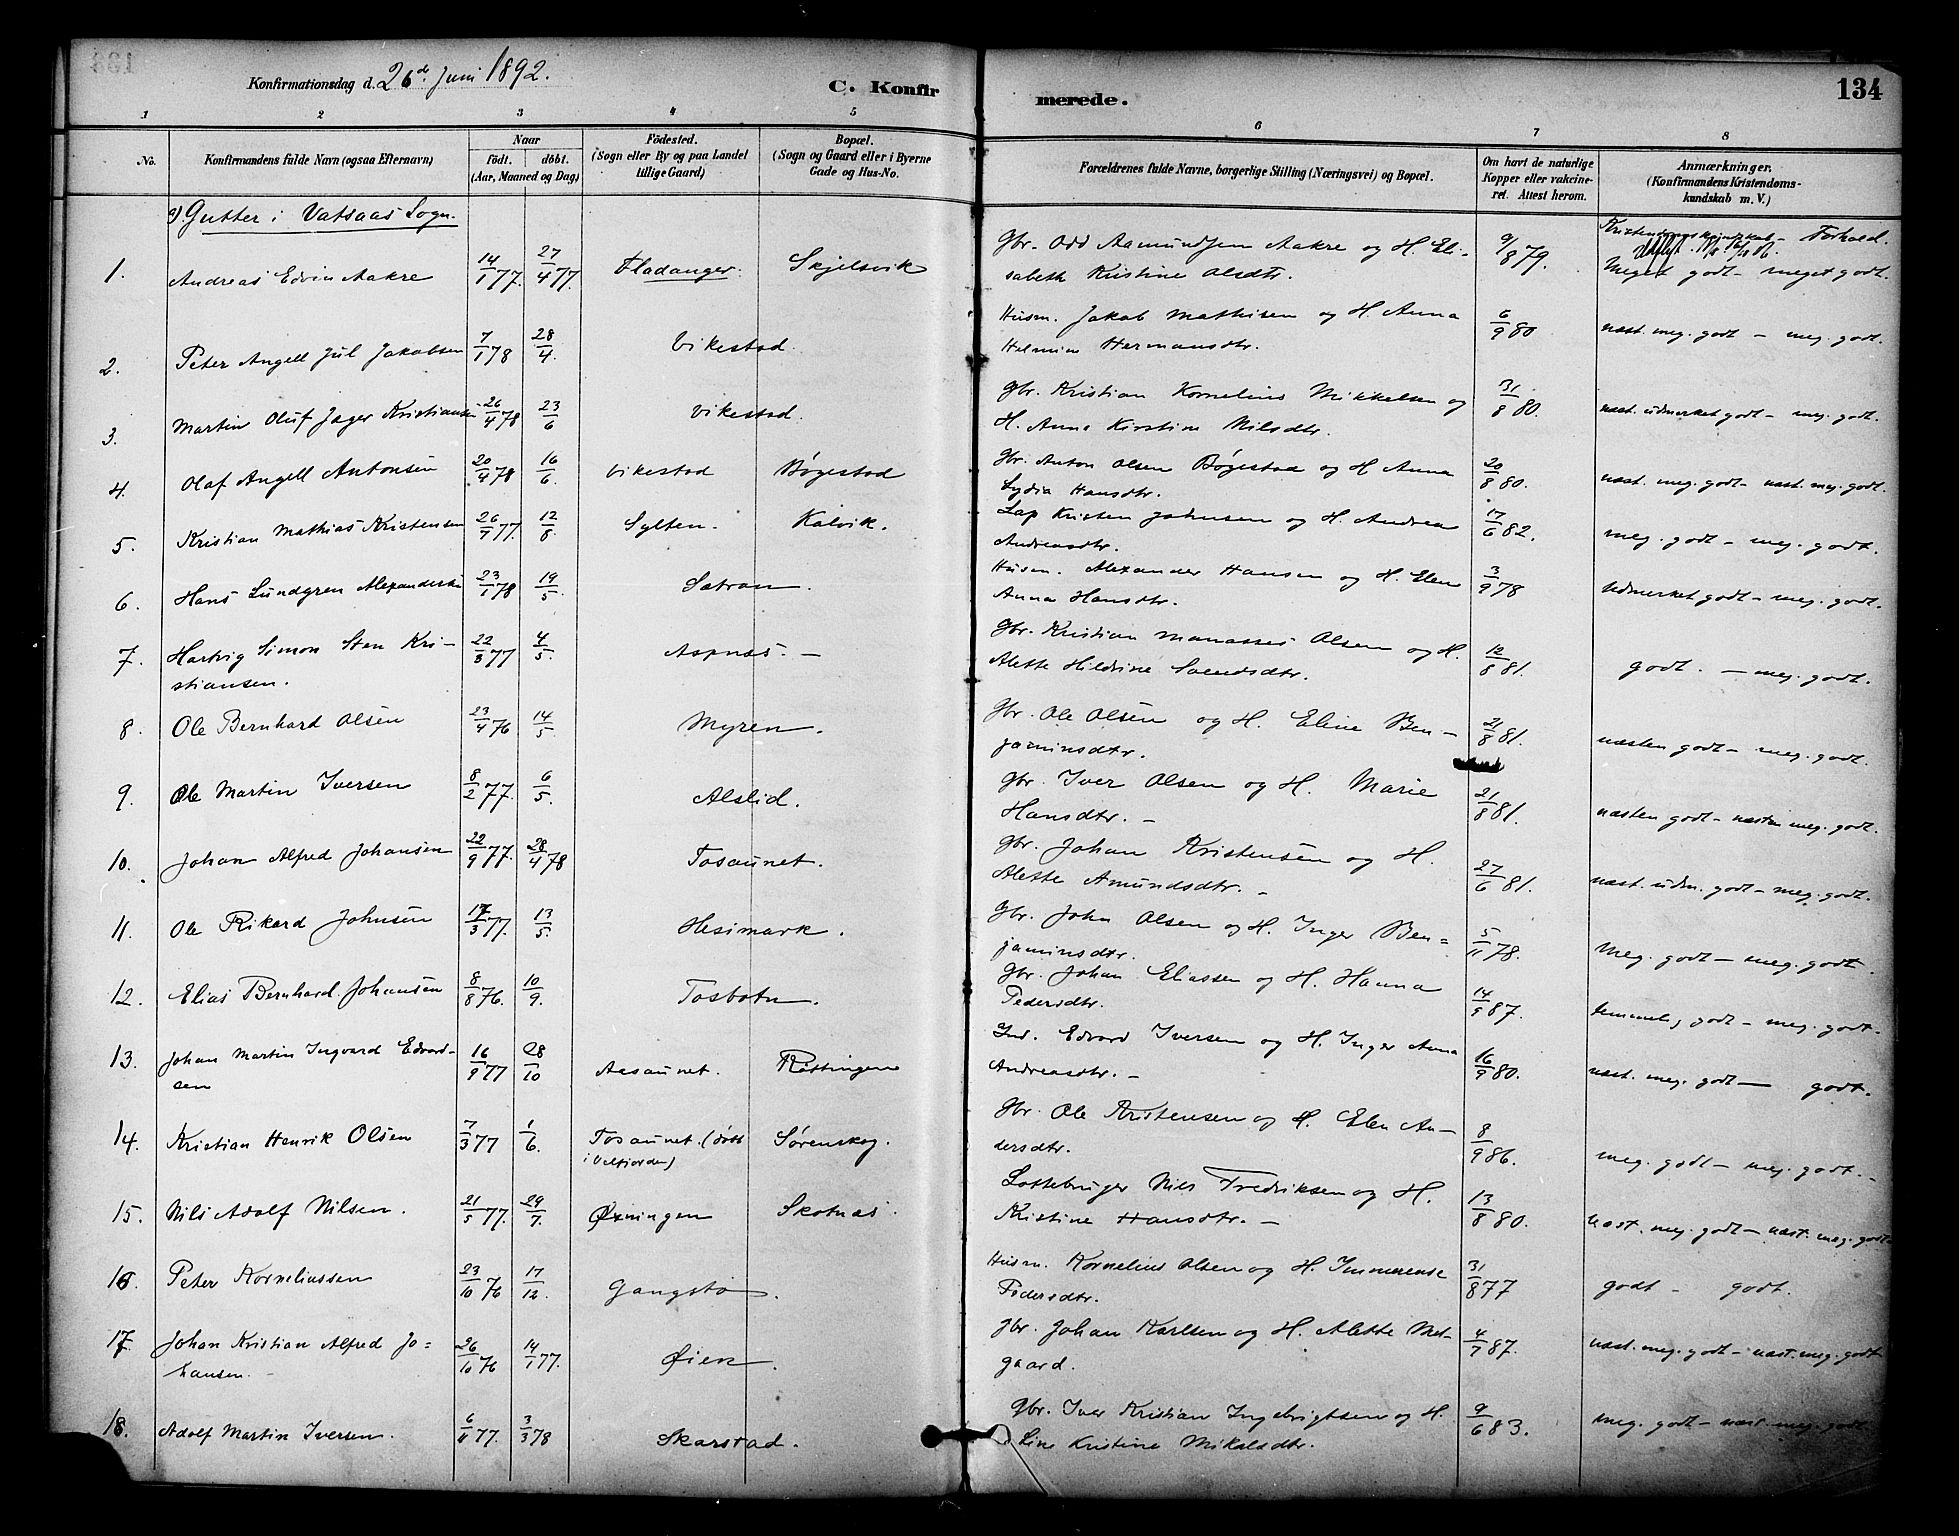 Konfirmationsdag d. 26d. Juni 1892.
C. Konfirmerede.
134
1 2 3 4 5 6 7 8
No.
Konfirmandens fulde Navn (ogsaa Efternavn)
Naar
födt. döbt.
(Aar, Maaned og Dag)
Födested.
(Sogn eller By og paa Landet
tillige Gaard)
Bopæl.
(Sogn og Gaard eller i Byerne
Gade og Hus-No.
Forældrenes fulde Navne, borgerlige Stilling (Næringsvei) og Bopæl.
Om havt de naturlige
Kopper eller vakcine-
ret. Attest herom.
Anmærkninger.
(Konfirmandens Kristendoms-
kundskab m. V.)
a) Gutter i Vatsaas Sogn.
Kristendomskundskab – Forhold.
1. Andreas Edvin Aakre 14/1 77. 27/4 77. Fladanger. Skjelsvik Gbr. Odd Aamundsen Aakre og H. Eli- 9/8 79. Meget godt – meget godt.
sabeth Kristine Olsdtr.
2. Peter Angell Jul Jakobsen 7/1 78 28/4. Vikestad. Husm. Jakob Mathisen og H. Anna 6/9 80 næst. meg. godt – meg. godt.
Helmine Hermansdtr.
3. Martin Oluf Jager Kristiansen 26/4 78 23/6 Vikestad. Gbr. Kristian Kornelius Mikkelsen og 31/8 80. næst. udmerket godt – meg. godt.
H. Anna Kirstine Nilsdtr.
4. Olaf Angell Antonsen 20/4 78 16/6. Vikestad Bøgestad Gbr. Anton Olsen Bøgestad og H Anna 20/8 80. næst. meg. godt – næst. meg. godt.
Lydia Hansdtr.
5. Kristian Mathias Kristensen 26/7 77. 12/8. Sylten. Kalvik. Lap Kristen Johnsen og H. Andrea 17/6 82. meg. godt – meg. godt.
Andreasdtr.
6. Hans Lundgren Alexandersen 23/1 78 19/5. Sætran. Husm. Alexander Hansen og H. Elen 3/9 78 udmerket godt – meg. godt.
Anna Hansdtr.
7. Hartvig Simon Sten Kri- 22/3 77 4/5. Aspnæs. – Gbr. Kristian Manasses Olsen og H. 12/8 81. godt. – meg. godt.
stiansen. Alette Hildrine Svendsdtr.
8. Ole Bernhard Olsen 23/4 76 14/5. Myren. Gbr. Ole Olsen og H. Eline Ben- 21/8 81. næsten godt – meg. godt.
jaminsdtr.
9. Ole Martin Iversen 8/2 77. 6/5. Alslid. Gbr. Iver Olsen og H. Marie 21/8 81. næsten godt – næsten meg. godt.
Hansdtr. –
10. Johan Alfred Johansen 22/9 77. 28/4 78 Tosaunet. Gbr. Johan Kristensen og H. 27/6 81. næst. udm. godt – meg. godt.
Alette Amundsdtr. –
11. Ole Rikard Johnsen 17/3 77. 13/5. Hesimark. Gbr. John Olsen og H. Inger Ben= 5/11 78. Meg. godt – meg. godt.
jaminsdtr.
12. Elias Bernhard Johansen 8/8 76. 10/9. Tosbotn. Gbr. Johan Eliassen og H. Hanna 14/9 87. temmelig godt – meg. godt.
Pedersdtr.
13. Johan Martin Ingvard Edvard- 16/9 77 28/10 Aasaunet. Røttingene Ind. Edvard Iversen og H. Inger Anna 16/9 80. næst. meg. godt – godt.
sen Andreasdtr. –
14. Kristian Henrik Olsen 7/3 77 1/6. Tosaunet. (døbt Sørenskog. Gbr. Ole Kristensen og H. Elen An- 8/9 86. meg. godt – meg. godt. –
i Velfjorden) dersdtr.
15. Nils Adolf Nilsen. 21/5 77. 29/7. Øxningen Skotnæs. Lottebruger Nils Fredriksen og H. 13/8 80. næst. meg. godt – næst. meg. godt.
Kristine Hansdtr. –
16. Peter Korneliussen 23/10 76 17/12. Gangstø. Husm. Kornelius Olsen og H. Immerense 31/8 77 godt – godt.
Pedersdtr.
17. Johan Kristian Alfred Jo= 26/10 76 14/1 77. Øien. Gbr. Johan Karlsen og H. Alette Mel- 4/7 87. næst. meg. godt – næst. meg. godt
hansen. gaard.
18. Adolf Martin Iversen. 6/11 77. 3/3 78 Skarstad. Gbr. Iver Kristian Ingebrigtsen og H. 9/6 83. meg. godt – næst. meg. godt
Line Kristine Mikalsdtr.